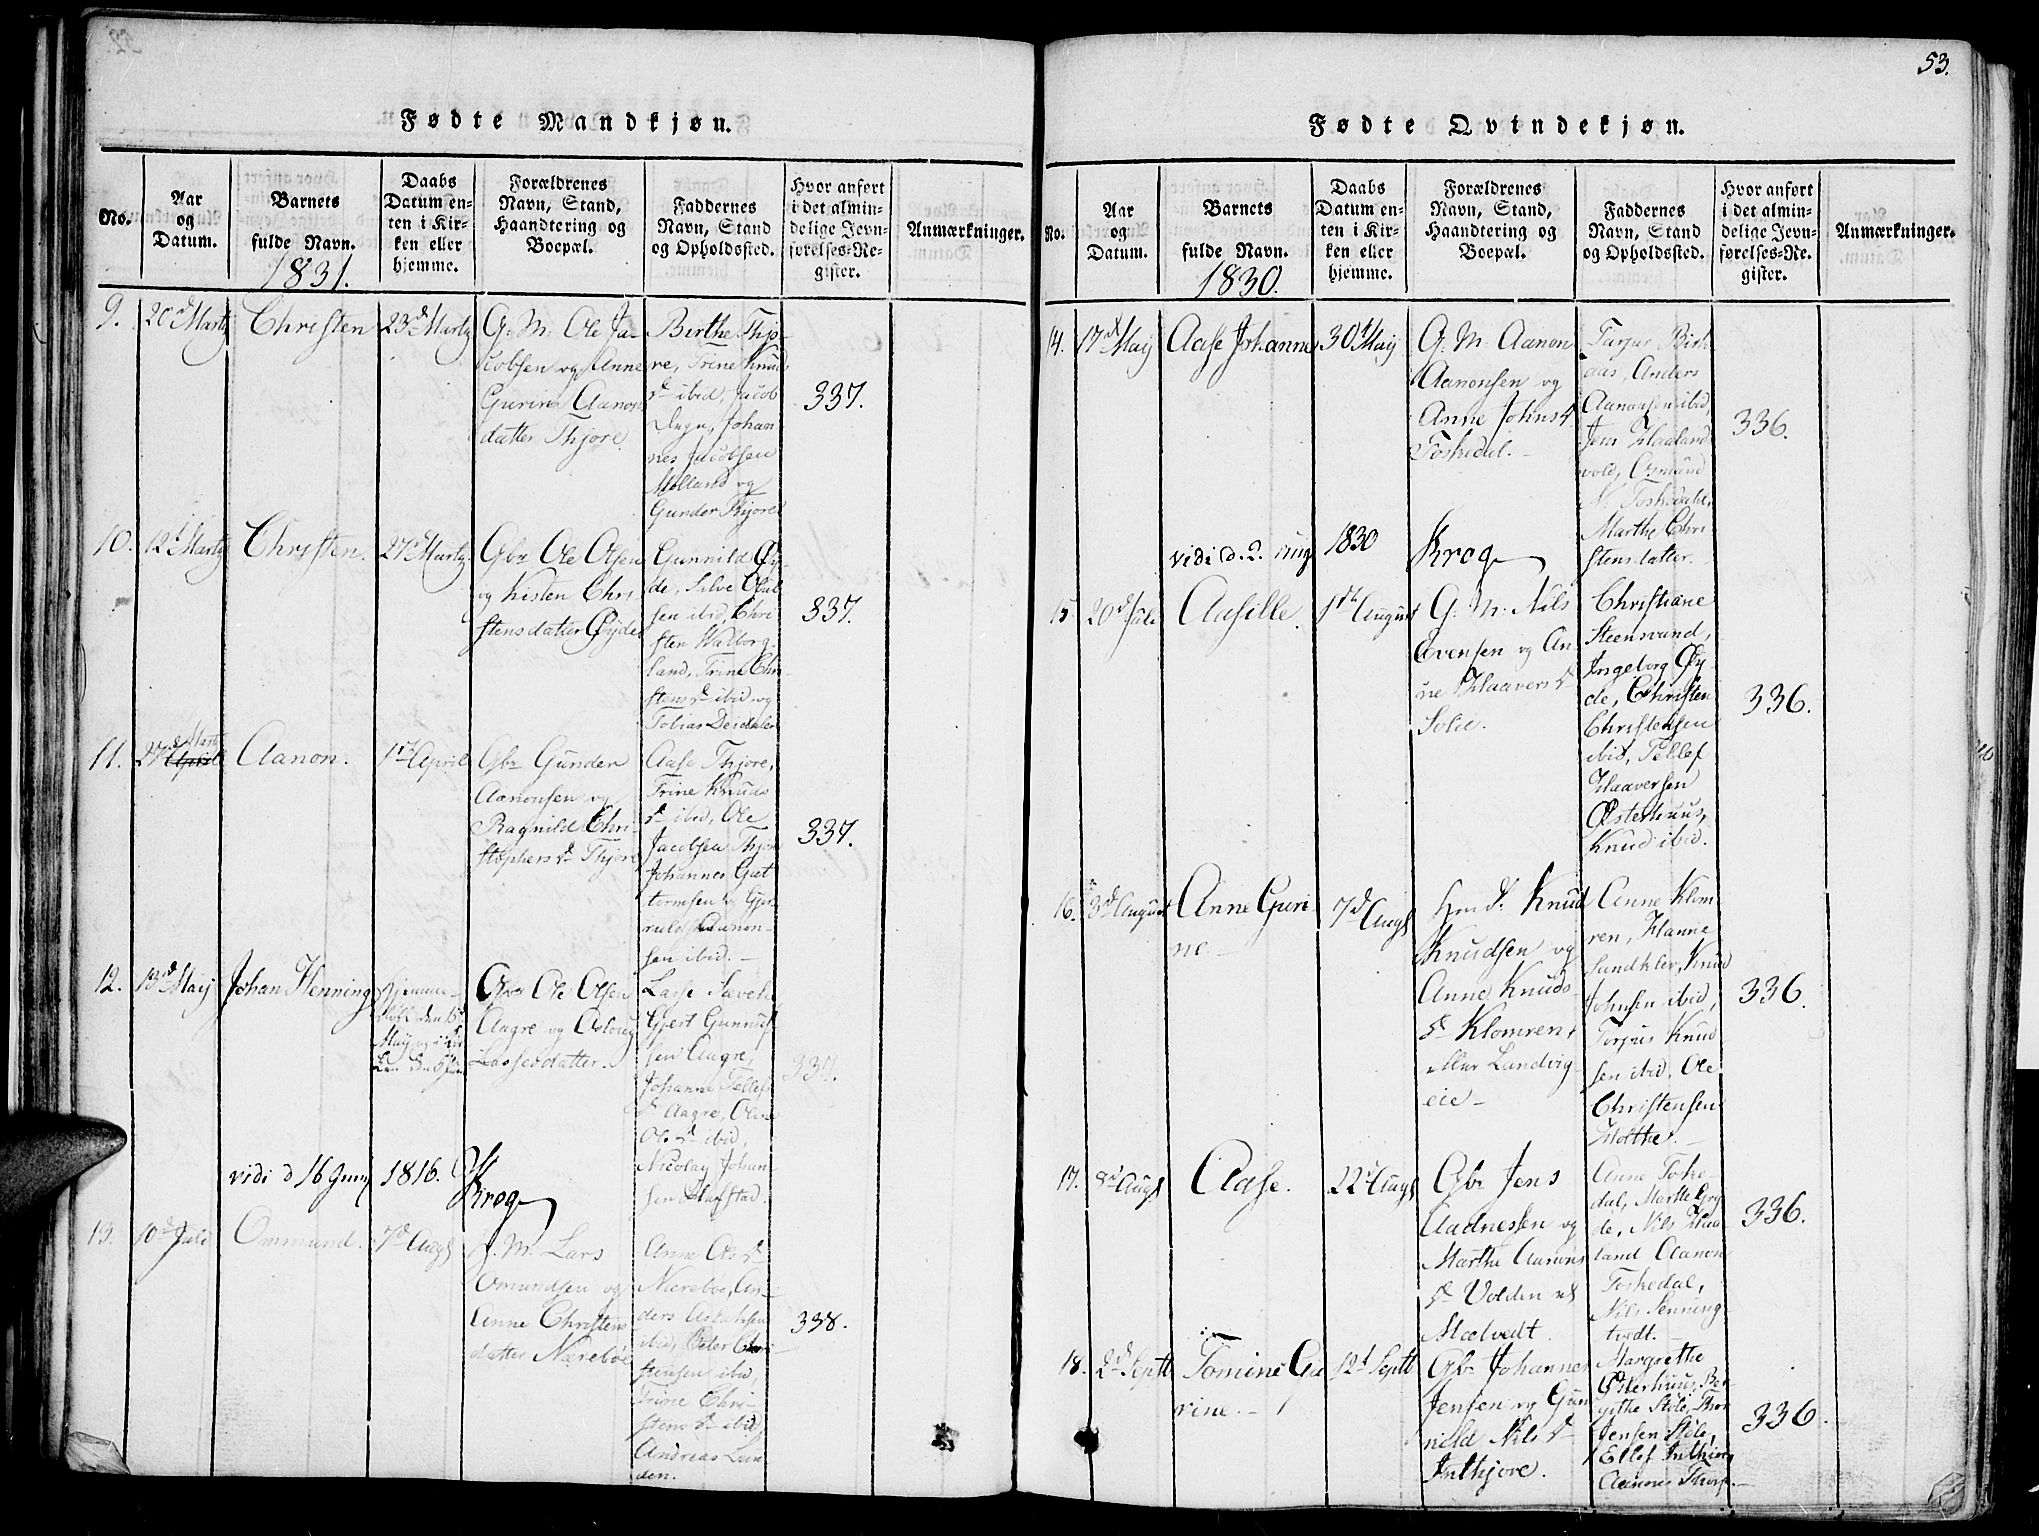 53.
Fødte Mandkjøn.
No.
Aar
og
Datum.
Barnets
fulde Navn.
1831.
Daabs
Datum en-
ten i Kir-
ken eller
hjemme.
Forældrenes
Navn, Stand,
Haandtering og
Boepæl.
Faddernes
Navn, Stand
og Opholdssted.
Hvor anført
i det almin-
delige Jevn-
førelses-Re-
gister.
Anmærkninger.
9.
20d Martz
Christen
23d Martz
G. M. Ole Ja-
cobsen og Anne
Gurine Aanon
datter Thjore
Berthe Thjo-
re, Trine Knud
dr ibid, Jacob
Johan
nes Jacobsen
Molland og
Gunder Thjore
337.
10.
12d Martz
Christen.
27d Martz
Gbr Ole Olsen
og Kisten Chri
stensdatter Øyde
Gunnild Øy-
de, Silve Oluf
sen ibid, Chri
sten Walborg-
land, Trine Chri-
stens dr ibid og
Tobias Desdalen
337.
11.
27d Martz
April
Aanon.
1ste April
Gbr Gunder
Aanonsen og
Ragnild Chri-
stophers dr Thjore
Aase Thjore,
Trine Knuds
dr ibid, Ole
Jacobsen Thjore
Johannes Gut
tormsen og Gjer-
ruld Aanon-
sen ibid. -
337.
12.
13d Maij
Johan Henning
Hjemme-
døbt den 15d
Maij og i Kir
ken den 5 Juni
Gbr Ole Olsen
Aagre og Aslaug
Lassesdatter.
Lasse Sævele
Gjert Gunnuf-
sen Aagre,
Johanne Tellefs
dr Aagre, Olene
Ols dr ibid,
Nicolay Johan-
sen
337.
vidi d 16 Juny
1816.
Krog
13.
10d Juli
Ommund.
7d Augs
G. M. Lars
Omundsen og
Anne Christens
datter Nærebøe
Anne Ols dr
Nærebøe, An-
ders Aslaksen
ibid, Peter Chri-
stensen ibid,
Trine Chri-
stens dr ibid
Andreas Lun-
den.
338.
Fødte Qvindekjøn.
No.
Aar
og
Datum.
Barnets
fulde Navn.
1830.
Daabs
Datum en-
ten i Kir-
ken eller
hjemme.
Forældrenes
Navn, Stand,
Haandtering og
Boepæl.
Faddernes
Navn, Stand
og Opholdssted.
Hvor anført
i det almin-
delige Jevn-
førelses-Re-
gister.
Anmærkninger.
14.
17d Maij
Aase Johanne
30d Maij
G. M. Aanon
Aanonsen og
Anne Johns dr
Toskedal. -
Tarjer Birk
aas, Anders
Aanonsen ibid,
Jens Haaland
vold, Omund
N. Toskedal,
Marthe Chri
stensdatter
336.
vidi d. 2. Aug
1830
Krog
15
20d Juli
Aasille.
1ste August
G. M. Nils
Evensen og An-
ne Haavers dr
Solie.
Christiane
Steensvand,
Ingeborg Øy-
de, Christen
Christensen
ibid, Tellef
Haaversen
Østerhuus,
Knud ibid.
336.
16.
3d August
Anne Guri-
ne. -
7d Augs
Knud
Knudsen og
Anne Knuds-
dr Klomren
eller Landvig
eie -
Anne Klom-
ren, Hanne
Sundkler, Knud
Johnsen ibid,
Torjus Knud
sen ibid, Ole
Christensen
Holthe. -
336.
17.
8d Augs
Aase.
22d Augs
Gbr Jens
Aadnessen og
Marthe Aanons
dr Volden
Mælvedt.
Anne Toske
dal, Marthe Gry
de, Nils Haa
land Aanon
Toskedal,
Nils Senning-
tvedt. -
336.
18.
2d Septb
Tomine Gu
rine. -
12d Septb
Gbr Johannes
Jensen og Gun
nild Nils dr
Inthjore.
Margrethe
Østerhuus, Ber-
githe Støle, Thor
Jensen Støle,
Ellef Inthjore
Aanon Thorse. -
336.